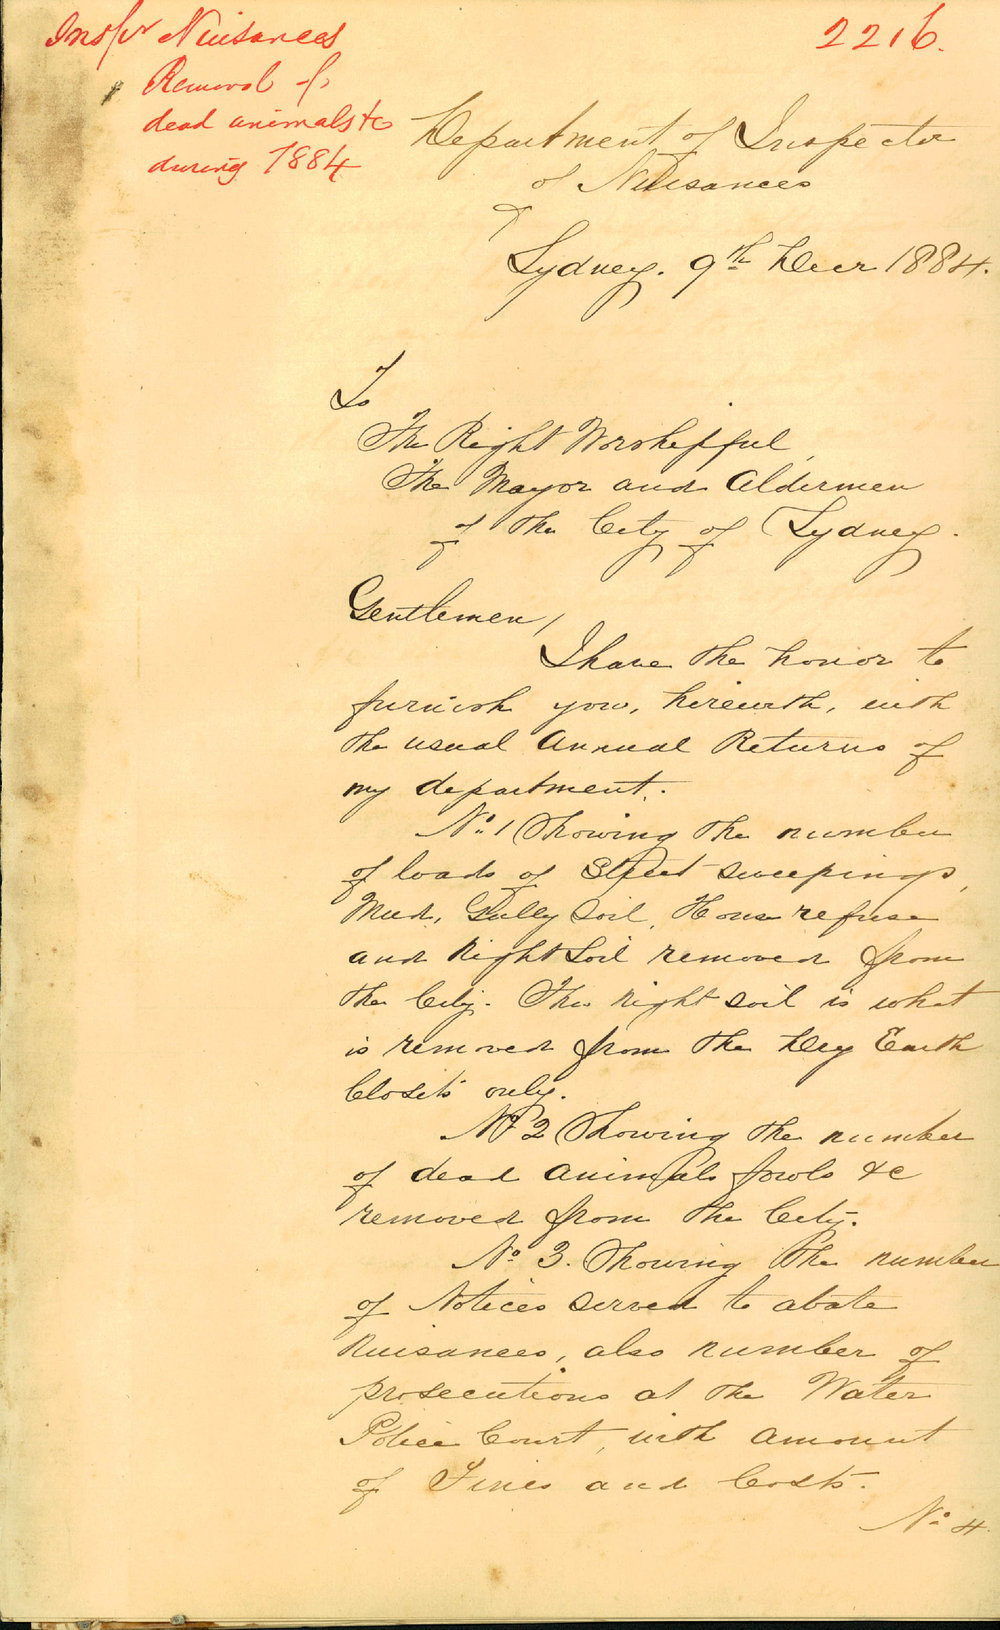 Inspr Nuisances
Removal of
dead animals &c
during 1884
2216.
Department of Inspector
of Nuisances
Sydney. 9th Decr 1884.
To
The Right Worshipful,
The Mayor and Aldermen
of the City of Sydney.
Gentlemen,
I have the honor to
furnish you, herewith, with
the usual Annual Returns of
my department.
No. 1 Showing the number
of loads of Street sweepings,
Mud, Gully Soil, House refuse
and Night Soil removed from
the City. The Night soil is what
is removed from the Dry Earth
Closets only.
No 2 Showing the number
of dead animals fowls &c
removed from the City.
No 3. Showing the number
of Notices served to abate
Nuisances, also number of
prosecutions at the Water
Police Court, with amount
of Fines and Costs.
No. 4